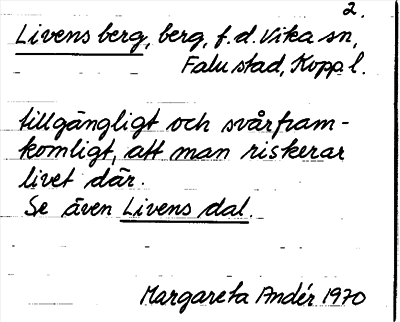 2.
Livens berg, berg, f.d. Vika sn,
Falu stad, Kopp l.
tillgängligt och svårfram-
komligt, att man riskerar
livet där.
Se även Livens dal.
Margareta Andér 1970